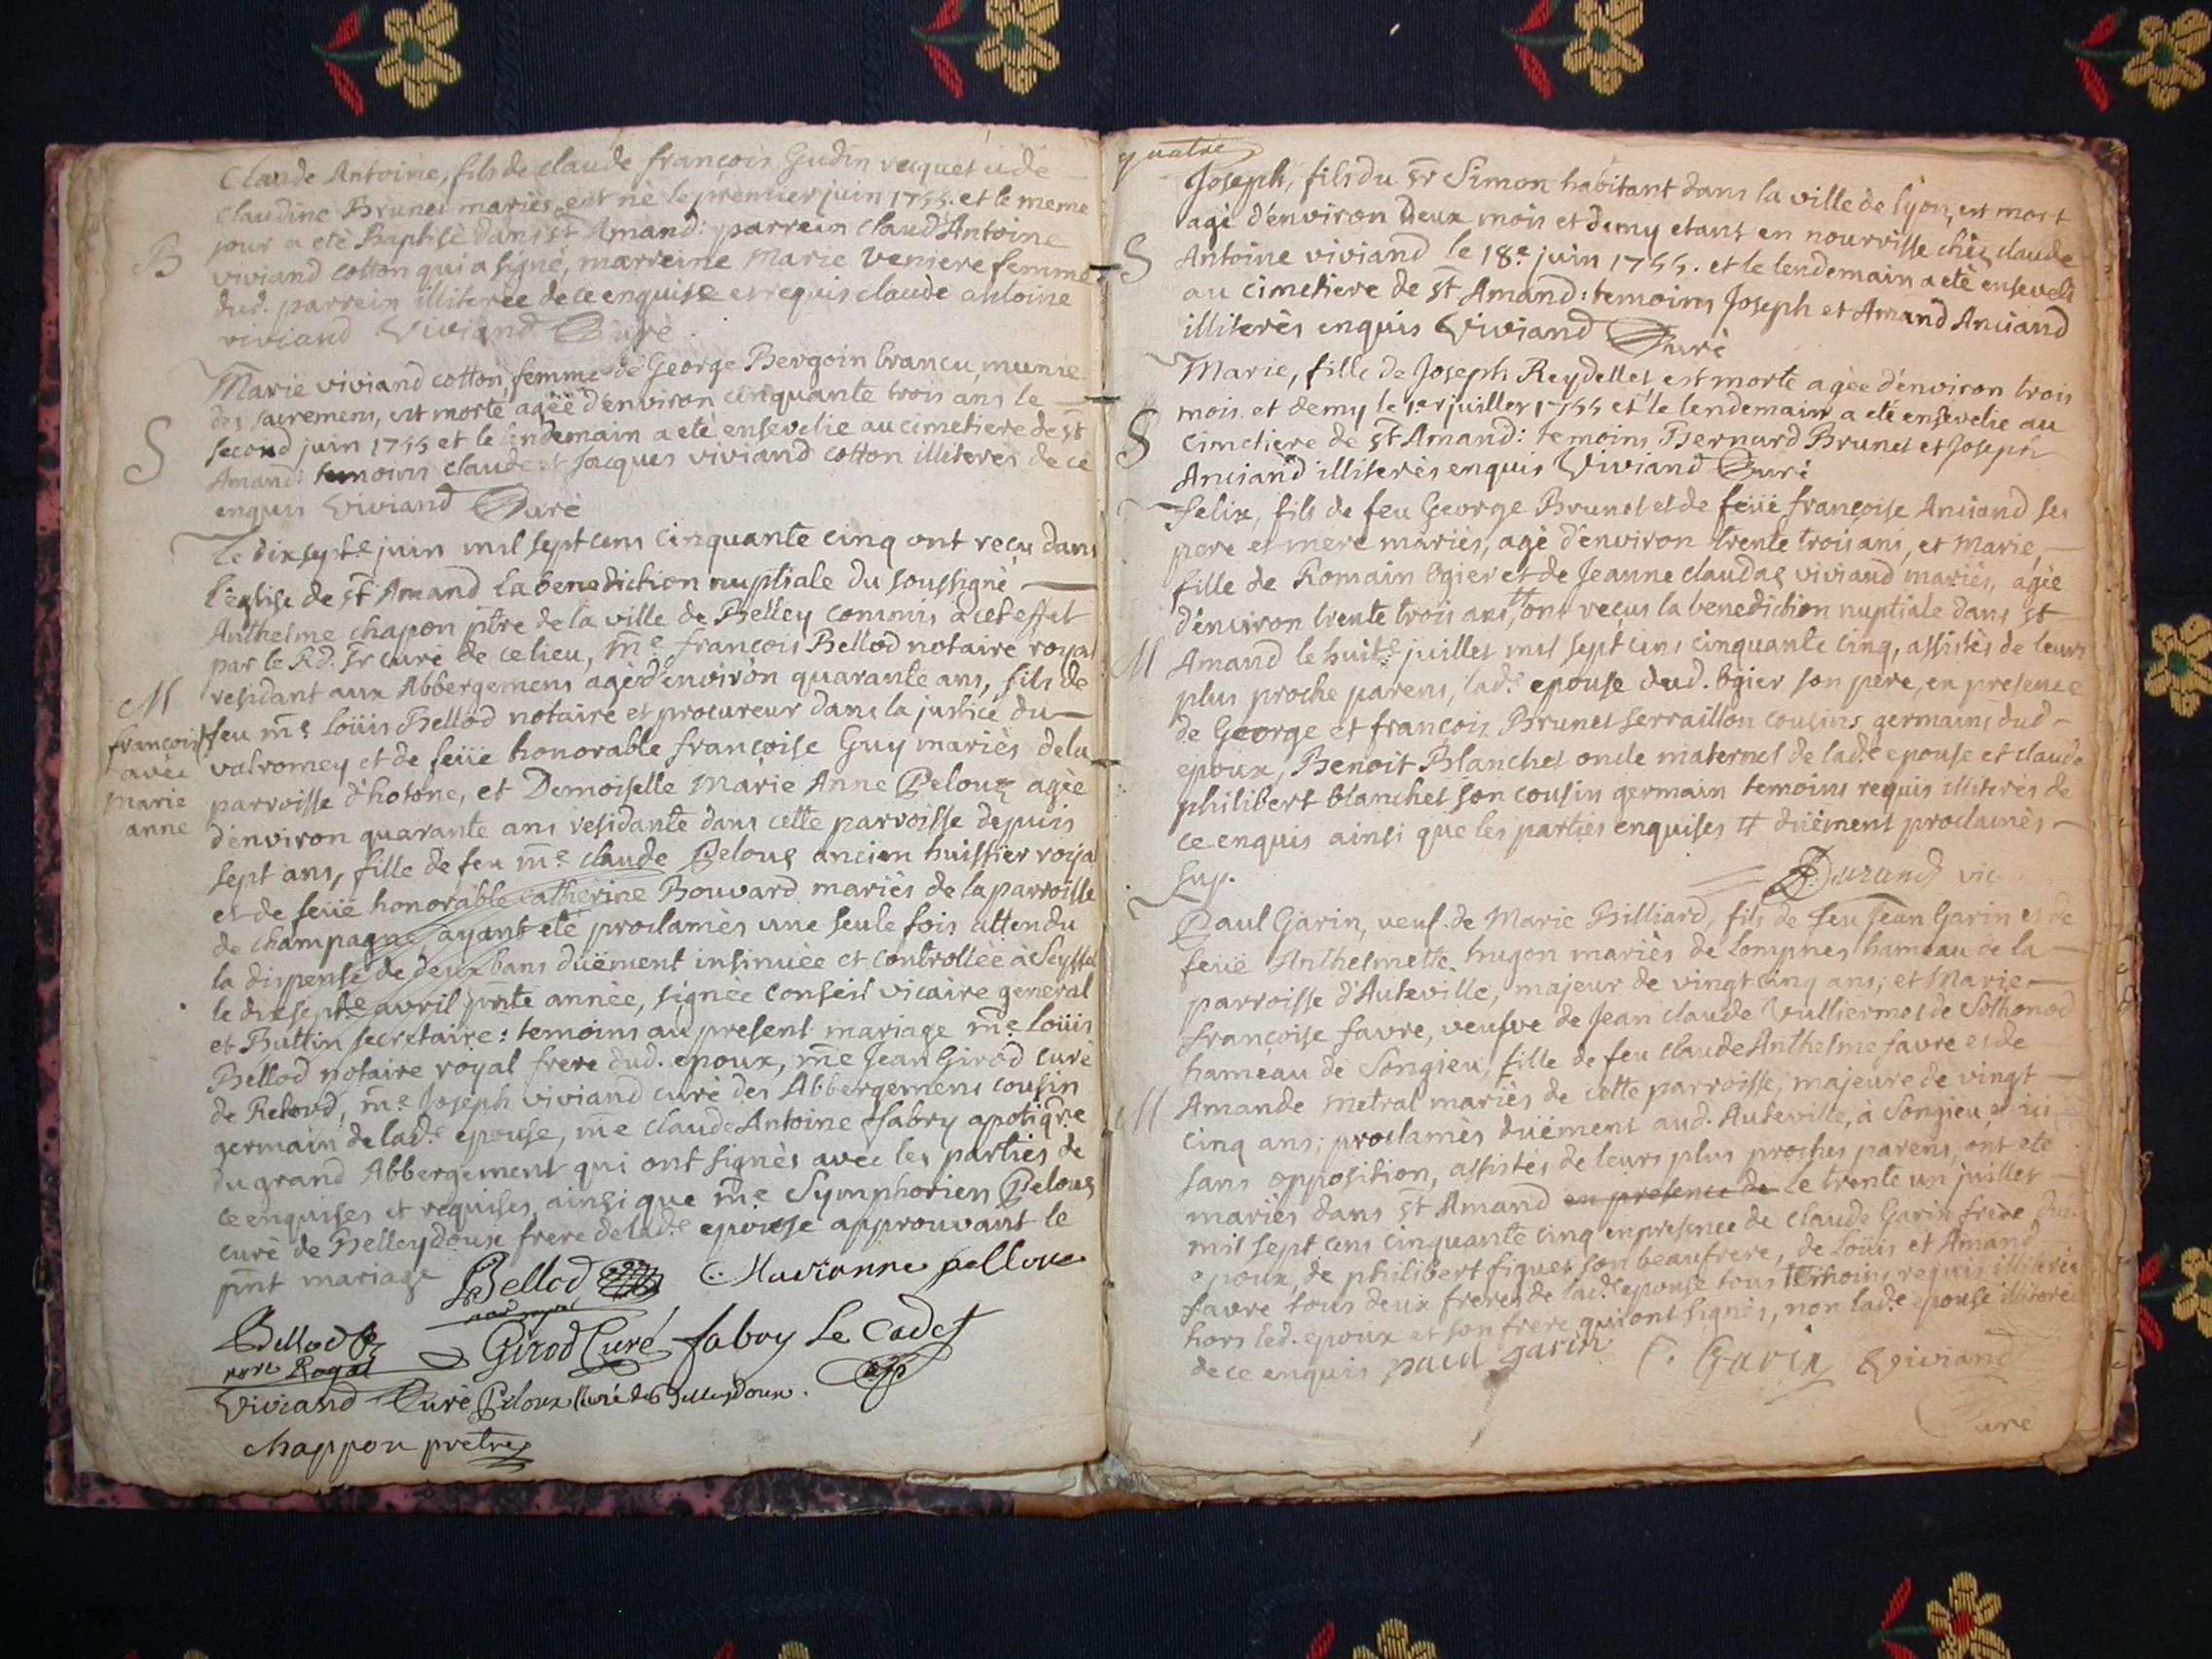 Claude Antoine, fils de claude françois Gudin vuquet et de
claudine Brunet mariès, est nè le premier juin 1755. et le meme
jour a etè Baptisè dans st Amand: parrein claud'Antoine
B
viviand cotton qui a signè, marreine Marie Veniere femme
dud. parrein illiterèe de ce enquise et requis claude antoine
viviand Viviand Curè
Marie viviand cotton, femme de George Bergoin brancu, munie
des sacremens, est morte agèë d'environ cinquante trois ans le
S
second juin 1755 et le lendemain a etè ensevelie au cimetiere de st
Amand: temoins claude et Jacques viviand cotton illiterès de ce
enquis Viviand Curè
Le dixsepte juin mil sept cens cinquante cinq ont reçu dans
l'eglise de st Amand la benediction nuptiale du soussignè
Anthelme chapon ptre de la ville de Belley commis à cet effet
par le Rd. Sr curè de ce lieu, me françois Bellod notaire royal
residant aux Abbergemens agè d'environ quarante ans, fils de
M
françois
avec
marie
anne
feu me Loüis Bellod notaire et procureur dans la justice du
valromey et de feüe honorable françoise Guy mariès de la
parroisse d'hotone, et Demoiselle Marie Anne Pelouz agèe
d'environ quarante ans residante dans cette parroisse depuis
sept ans, fille de feu me claude Pelouz ancien huissier royal
et de feüe honorable Catherine Bouvard mariès de la parroisse
de champagne, ayant etè proclamès une seule fois attendu
la dispense de deux bans düèment insinuèe et controllèe à Seyssel
le dixsepte avril pnte annèe, signèe Conseil vicaire general
et Buttin secretaire: temoins au present mariage me Loüis
Bellod notaire royal frere dud. epoux, me Jean Girod curè
de Retord, me Joseph viviand curè des Abbergemens cousin
germain de lade epouse, me claude Antoine fabry apotiqre
du grand Abbergement qui ont signès avec les parties de
ce enquises et requises, ainsi que me Symphorien Pelouz
curè de Belleydoux frere de lade epouse approuvant le
pnt mariage Bellod Marianne pellouz
not royal
Bellod
nore Royal Girod Curé fabry Le Cadet
Viviand Curè Pelouz curé de Belleydoux. ap
chappon pretre
quatre
Joseph, fils du sr Simon habitant dans la ville de lyon, est mort
agè d'environ deux mois et demy etant en nourrisse chèz claude
S
Antoine viviand le 18e juin 1755. et le lendemain a etè enseveli
au cimetiere de st Amand: temoins Joseph et Amand Anciand
illiterès enquis Viviand Curè
Marie, fille de Joseph Reydellet, est morte agèe d'environ trois
mois et demy le 1er juillet 1755 et le lendemain a etè ensevelie au
S
cimetiere de st Amand: temoins Bernard Brunet et Joseph
Anciand illiterès enquis Viviand Curè
Felix, fils de feu George Brunet et de feüe françoise Anciand ses
pere et mere mariès, agè d'environ trente trois ans, et Marie,
fille de Romain Ogier et de Jeanne claudaz viviand mariès, agèe
d'environ trente trois ans, # ont reçus la benediction nuptiale dans st
M
Amand le huite juillet mil sept cens cinquante cinq, assistès de leurs
plus proche parens, lade epouse dud. Ogier son pere, en presence
de George et françois Brunet serraillon cousins germains dud
epoux, Benoit Blanchet oncle maternel de lade epouse et claude
philibert blanchet son cousin germain temoins requis illiterès de
ce enquis ainsi que les parties enquises # düèment proclamès
Sup. Durand vic.
Paul Garin, veuf de Marie Billiard, fils de feu Jean Garin et de
feüe Anthelmette hugon mariès de Lompnes hameau de la
parroisse d'Auteville, majeur de vingt cinq ans; et Marie
Françoise favre, veufve de Jean claude Vulliermet de Sothonod
hameau de Songieu, fille de feu claude Anthelme favre et de
M
Amande Metral mariès de cette parroisse, majeure de vingt
cinq ans; proclamès düèment aud. Auteville, à Songieu et ici
sans opposition, assistès de leurs plus proches parens, ont etè
mariès dans st Amand en presence de le trente un juillet
mil sept cens cinquante cinq en presence de claude Garin frere dud.
epoux, de philibert figuet son beaufrere, de Loüis et Amand
favre tous deux freres de lade epouse tous temoins requis illiterès
hors led. epoux et son frere qui ont signès, non lade epouse illiterèe
de ce enquis paul garin C. Garin Viviand
Curè